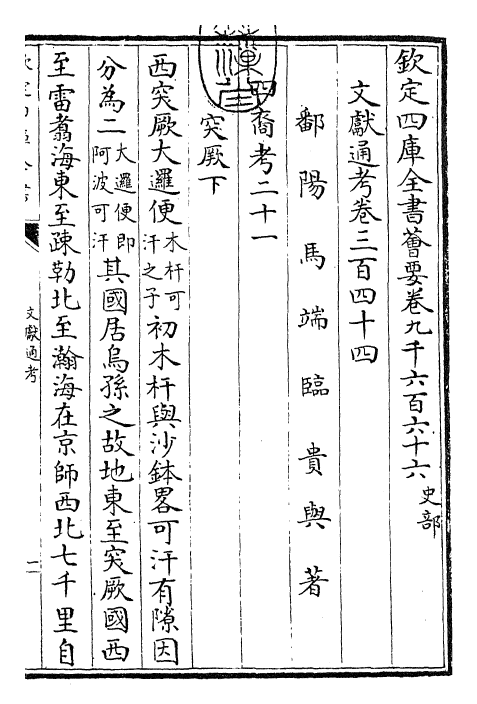 欽定四庫全書薈要卷九千六百六十六 史部
文獻通考卷三百四十四
鄱陽馬端臨貴與著
四裔考二十一
突厥下
西突厥大邏便木杆可汗之子初木杆與沙鉢畧可汗有隙因
分為二大邏便即阿波可汗其國居烏孫之故地東至突厥國西
至雷翥海東至疎勒北至瀚海在京師西北七千里自
文獻通考
一